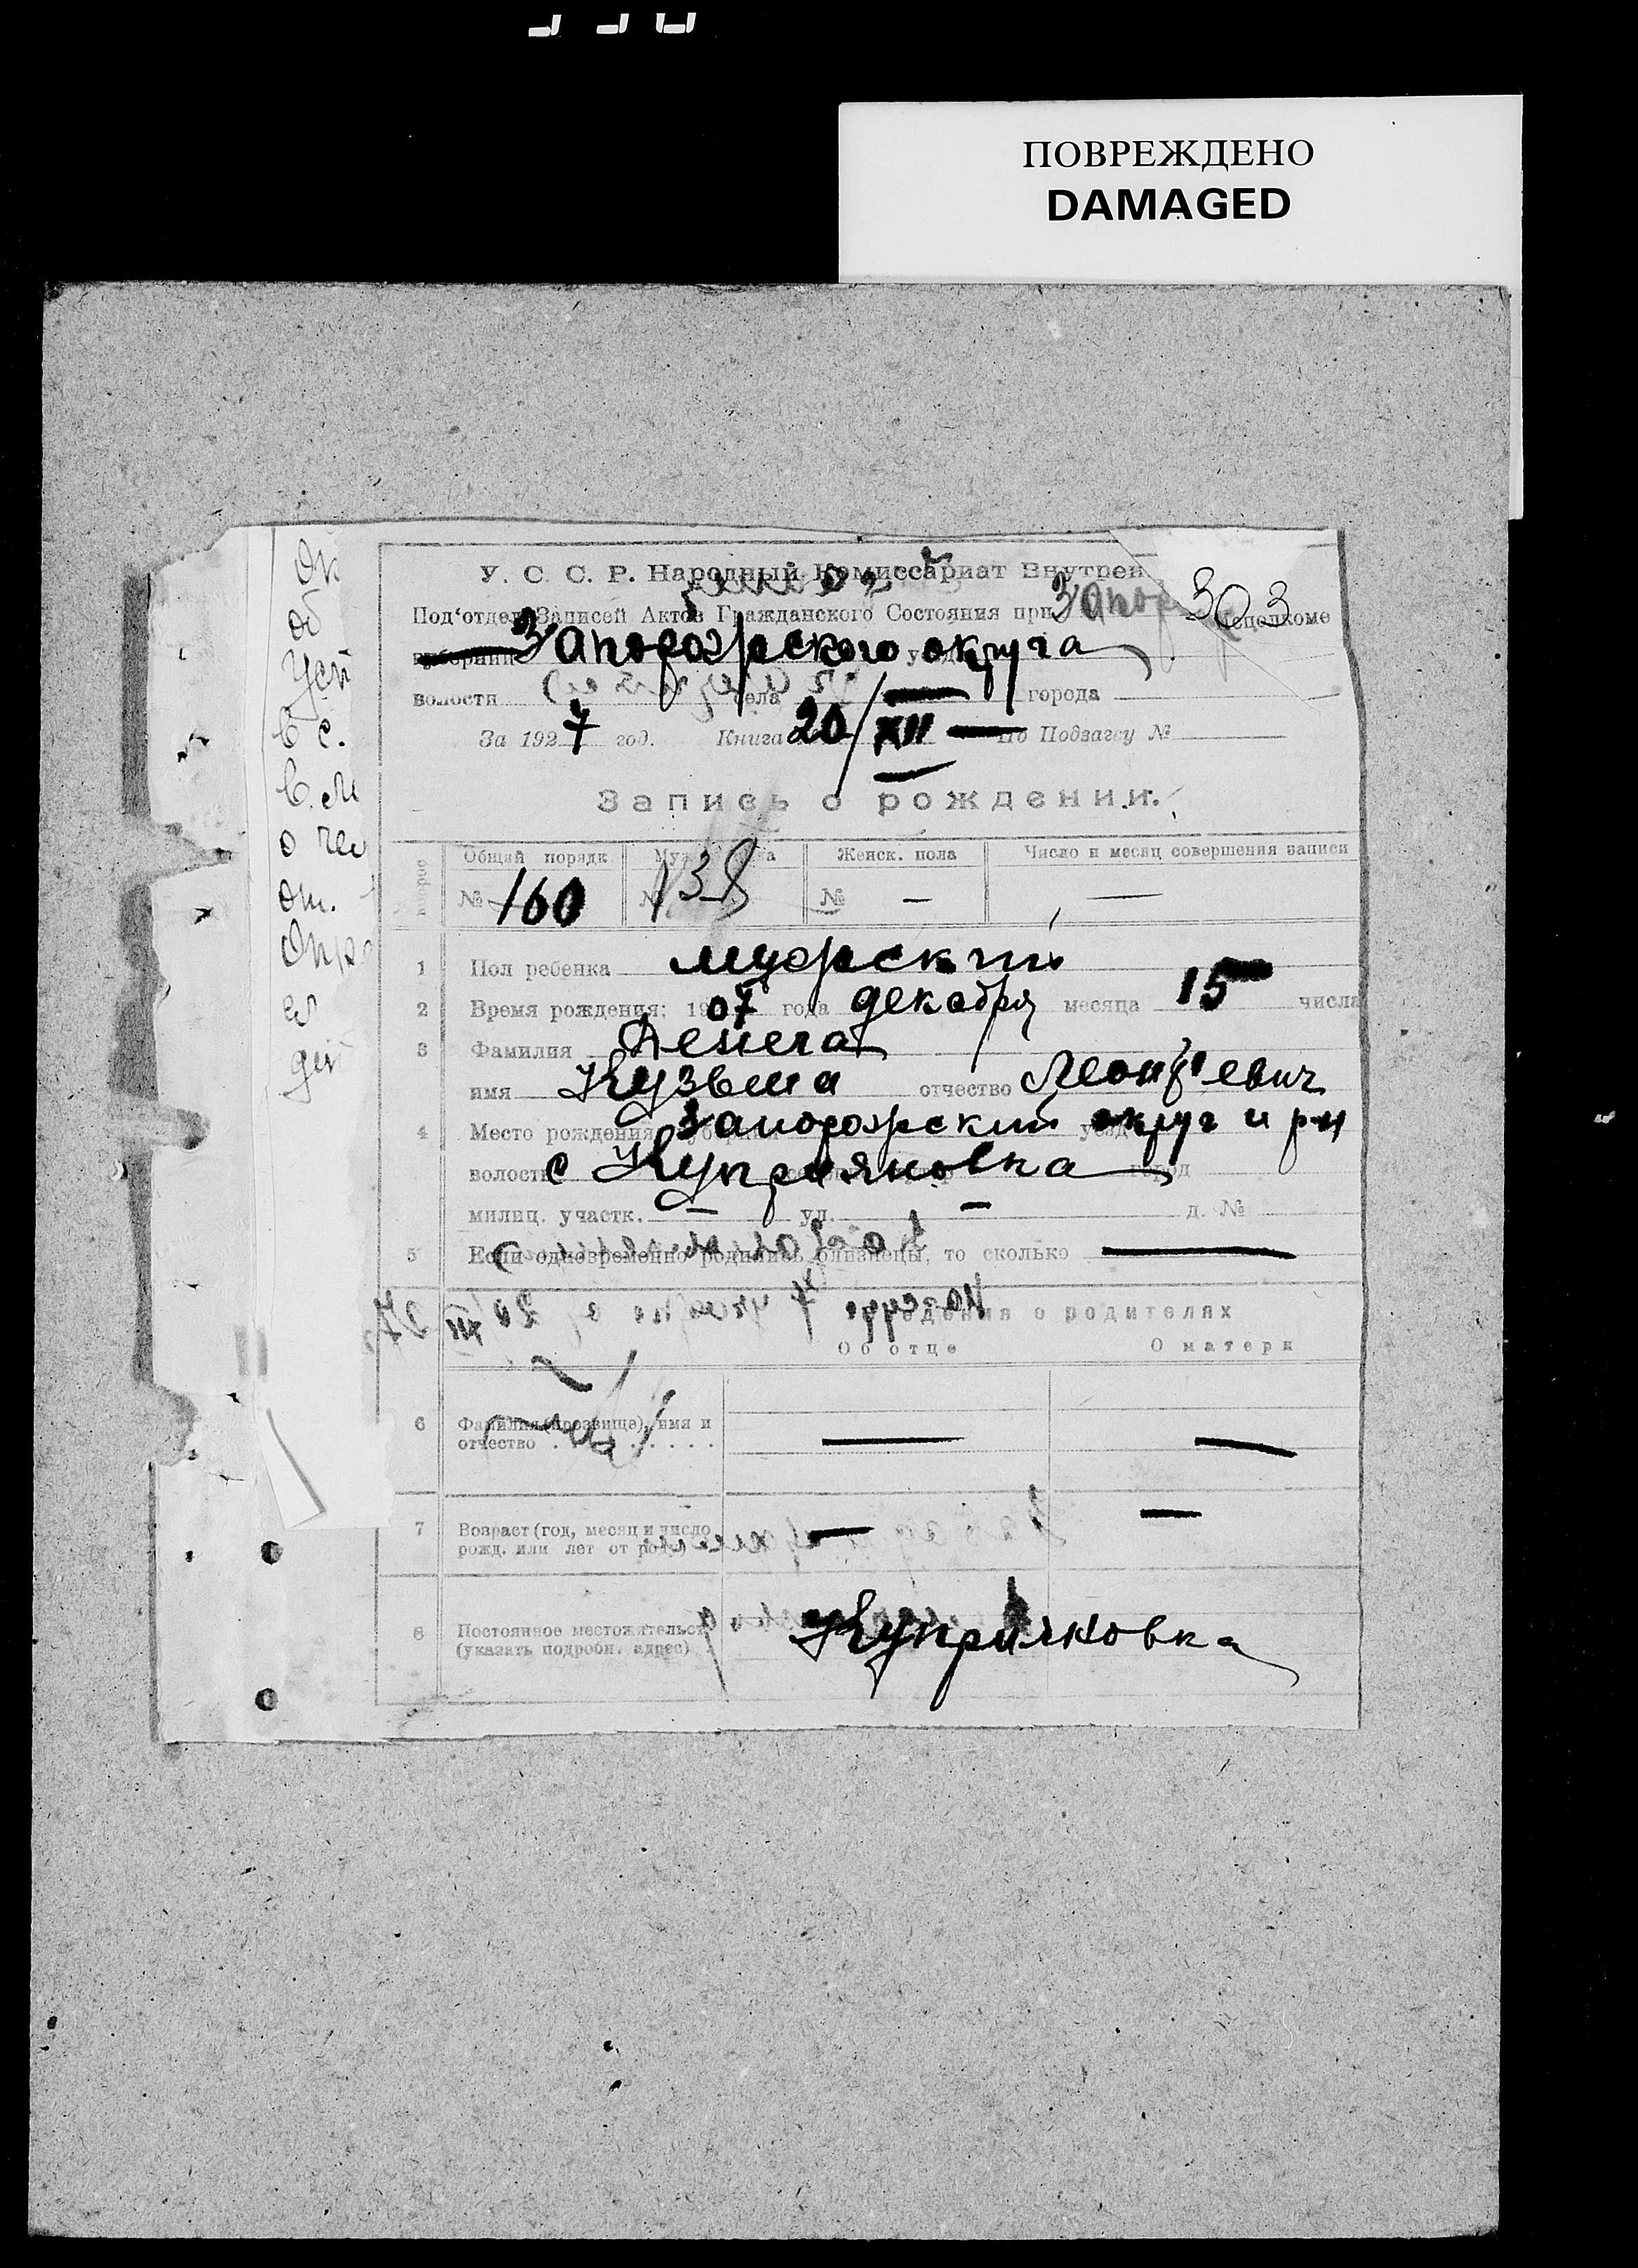 ПОВРЕЖДЕНО
DAMAGED
У. С. С. Р. Народный Комиссариат Внутрен
303
Под'отдел Записей Актов Гражданского Состояния при Запор Исполкоме
губернии Запорожского округа
волости села города
За 1927 год. Книга 20/XII По Подзагсу №
Запись о рождении.
Общий порядк. Мужск. пола Женск. пола Число и месяц совершения записи
№ 160 № 138 № — —
1 Пол ребенка мужский
2 Время рождения: 1907 года декабря месяца 15 числа
3 Фамилия Денега
имя Кузьма отчество Леонтьевич
4 Место рождения: Запорожский округ и рн
волость с Куприяновка
милиц. участк. — ул. — д. №
5 Если одновременно родились близнецы, то сколько —
Сведения о родителях
Об отце О матери
6 Фамилия (прозвище), имя и
отчество — —
7 Возраст (год, месяц и число
рожд. или лет от роду) — —
8 Постоянное местожительст Куприяновка
(указать подробн. адрес)
ок
об
Усп
в с.
в. м
о чем
от.
Опр
ел
дей